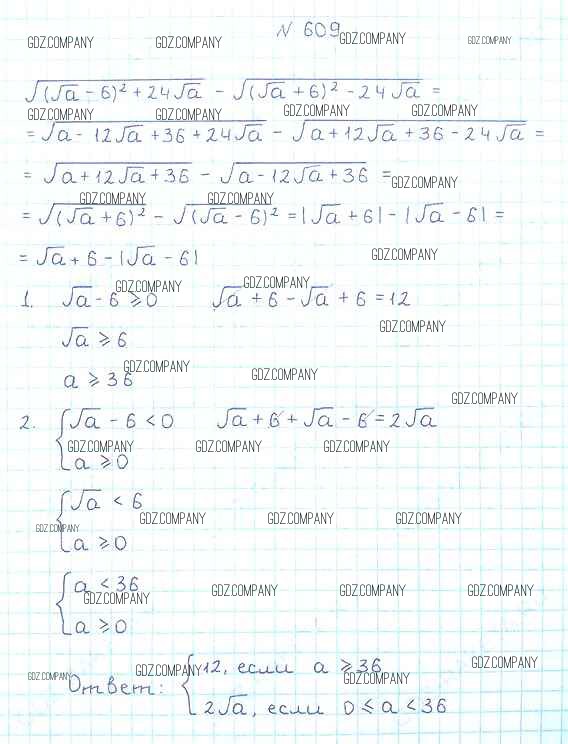 N 609
GDZ.COMPANY GDZ.COMPANY GDZ.COMPANY GDZ.COMPANY
√((√a - 6)² + 24√a) - √((√a + 6)² - 24√a) =
GDZ.COMPANY GDZ.COMPANY GDZ.COMPANY GDZ.COMPANY
= √(a - 12√a + 36 + 24√a) - √(a + 12√a + 36 - 24√a) =
= √(a + 12√a + 36) - √(a - 12√a + 36) =
GDZ.COMPANY
GDZ.COMPANY GDZ.COMPANY
= √((√a + 6)²) - √((√a - 6)²) = |√a + 6| - |√a - 6| =
= √a + 6 - |√a - 6|
GDZ.COMPANY
GDZ.COMPANY GDZ.COMPANY
1. √a - 6 ⩾ 0 √a + 6 - √a + 6 = 12
GDZ.COMPANY
√a ⩾ 6
GDZ.COMPANY GDZ.COMPANY
a ⩾ 36
GDZ.COMPANY
2. { √a - 6 < 0 √a + 6 + √a - 6 = 2√a
GDZ.COMPANY GDZ.COMPANY GDZ.COMPANY
a ⩾ 0
{ √a < 6
GDZ.COMPANY GDZ.COMPANY GDZ.COMPANY
GDZ.COMPANY
a ⩾ 0
{ a < 36
GDZ.COMPANY GDZ.COMPANY GDZ.COMPANY GDZ.COMPANY
a ⩾ 0
GDZ.COMPANY GDZ.COMPANY GDZ.COMPANY GDZ.COMPANY
Ответ: { 12, если a ⩾ 36
2√a, если 0 ⩽ a < 36